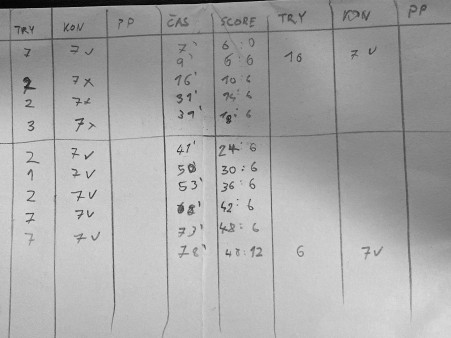 TRY KON PP ČAS SCORE TRY KON PP
7 7✓ 7' 6:0
9' 6:6 16 7✓
2 7× 16' 10:6
2 7× 31' 14:6
3 7× 39' 18:6
2 7✓ 41' 24:6
1 7✓ 50' 30:6
2 7✓ 53' 36:6
7 7✓ 42:6
7 7✓ 73' 48:6
78' 48:12 6 7✓